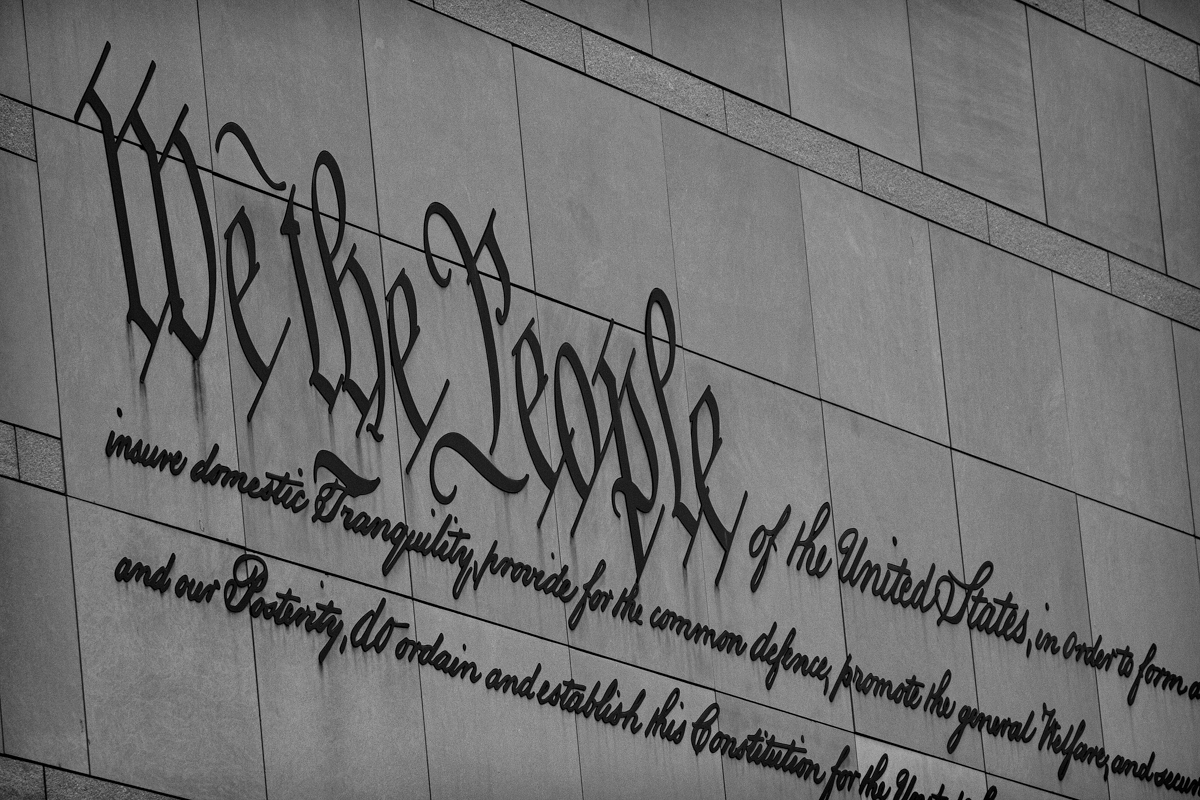 We the People of the United States, in order to form a
insure domestic Tranquility, provide for the common defence, promote the general Welfare, and secur
and our Posterity, do ordain and establish this Constitution for the United